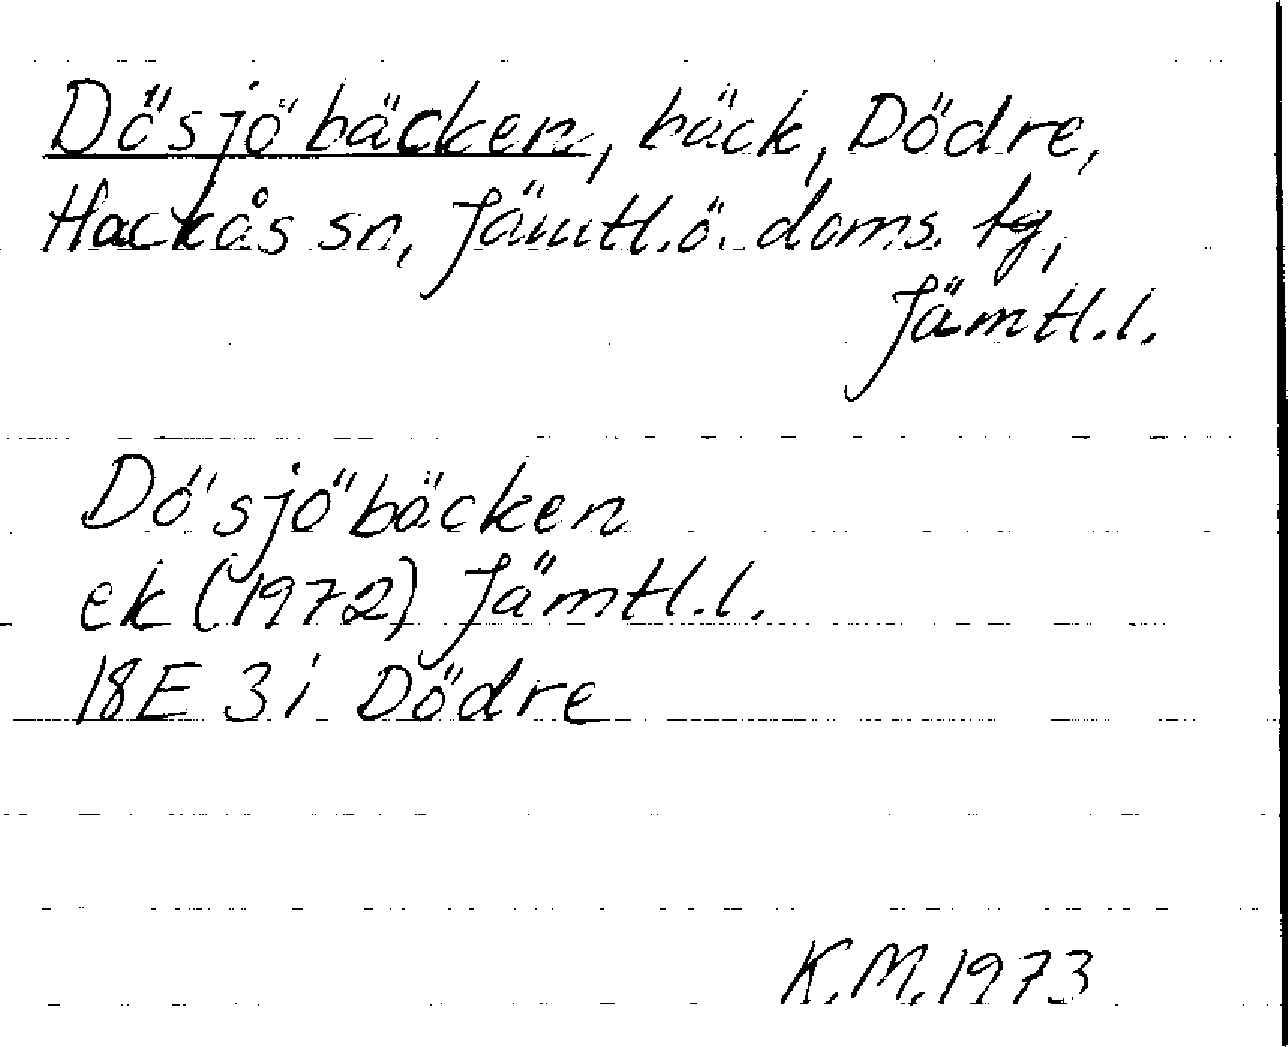 Dösjöbäcken, bäck, Dödre,
Hackås sn, Jämtl.ö. doms. tg,
Jämtl.l.
Dösjöbäcken
ek (1972) Jämtl.l.
18E 3i Dödre
K.M. 1973